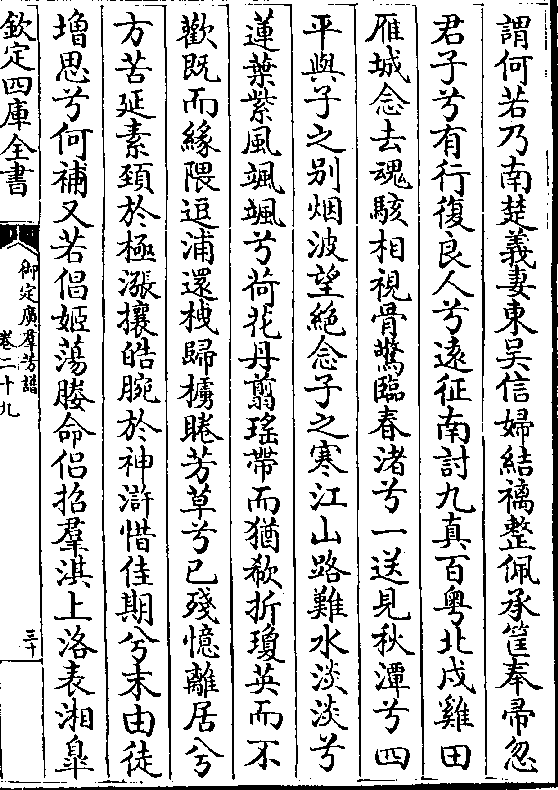 謂何若乃南楚義妻東吳信婦結褵整佩承筐奉帚忽
君子兮有行復良人兮逺征南討九真百粤北戍雞田
雁城念去魂駭相視骨驚臨春渚兮一送見秋潭兮四
平與子之别烟波望絶念子之寒江山路難水淡淡兮
蓮葉紫風颯颯兮荷花丹翦瑶帶而猶欷折瓊英而不
歡既而緣隈逗浦還拽歸櫎睠芳草兮已殘憶離居兮
方苦延素頚於極漲攘皓腕於神滸惜佳期兮末由徒
増思兮何補又若倡姬蕩媵命侣招羣淇上洛表湘臯
欽定四庫全書
御定廣羣芳譜
卷二十九
三十